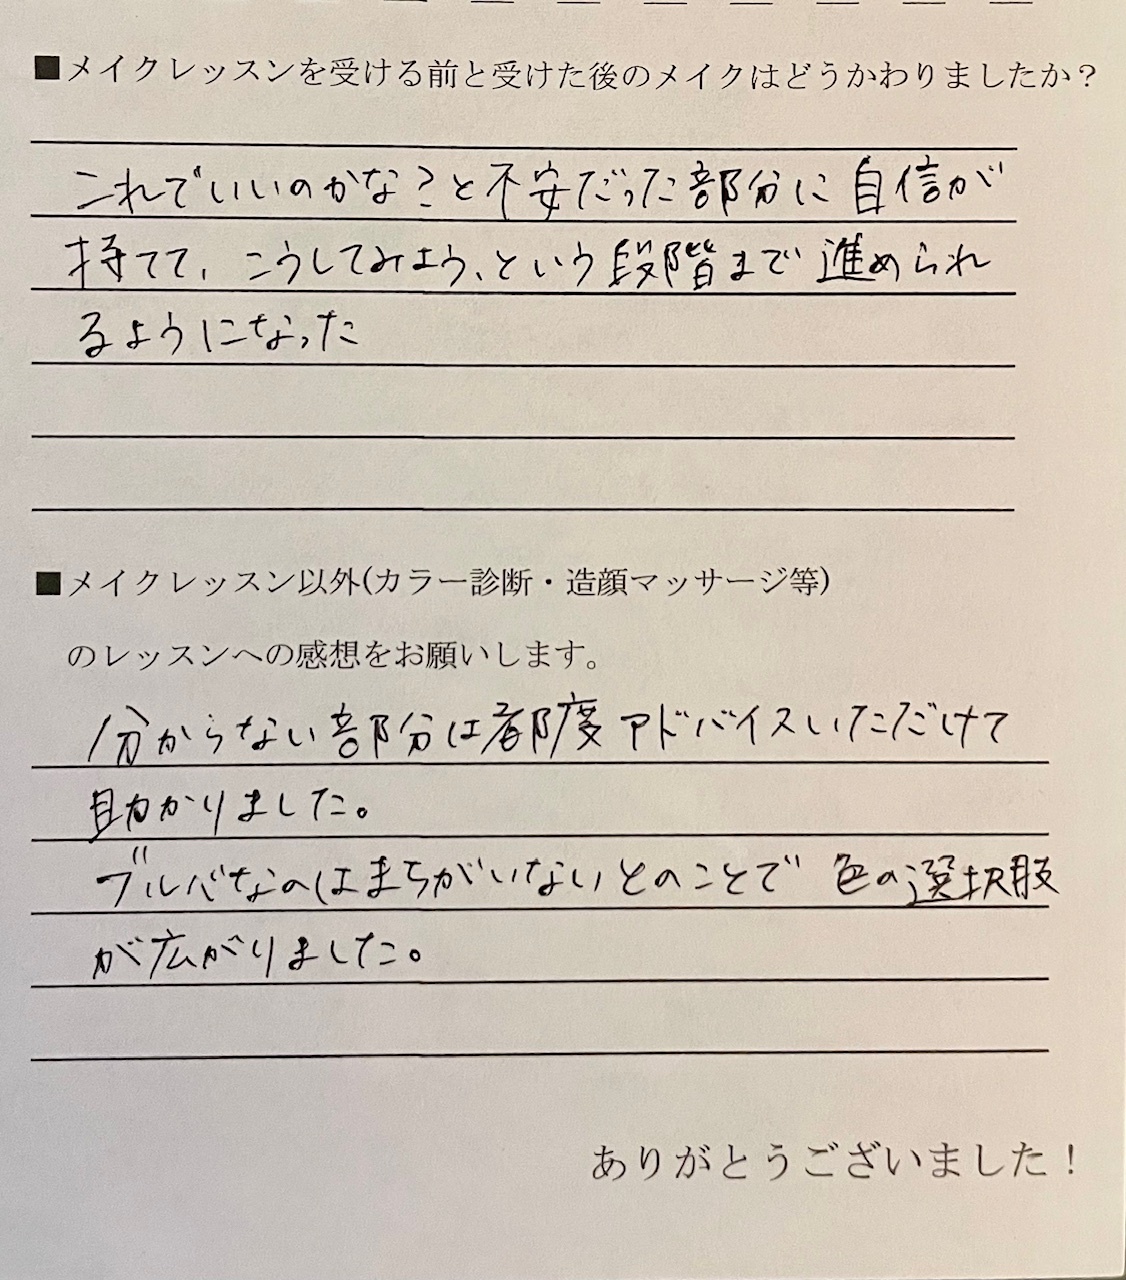 ■メイクレッスンを受ける前と受けた後のメイクはどうかわりましたか?
これでいいのかな?と不安だった部分に自信が
持てて、こうしてみよう、という段階まで進められ
るようになった
■メイクレッスン以外(カラー診断・造顔マッサージ等)
のレッスンへの感想をお願いします。
分からない部分は都度アドバイスいただけて
助かりました。
ブルベなのはまちがいないとのことで色の選択肢
が広がりました。
ありがとうございました!